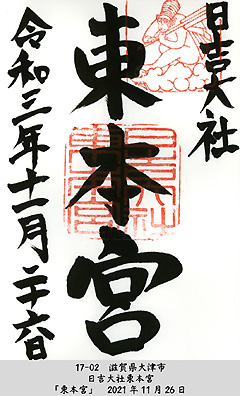 日吉大社
東本宮
令和三年十一月二十六日
17-02 滋賀県大津市
日吉大社東本宮
「東本宮」 2021年11月26日